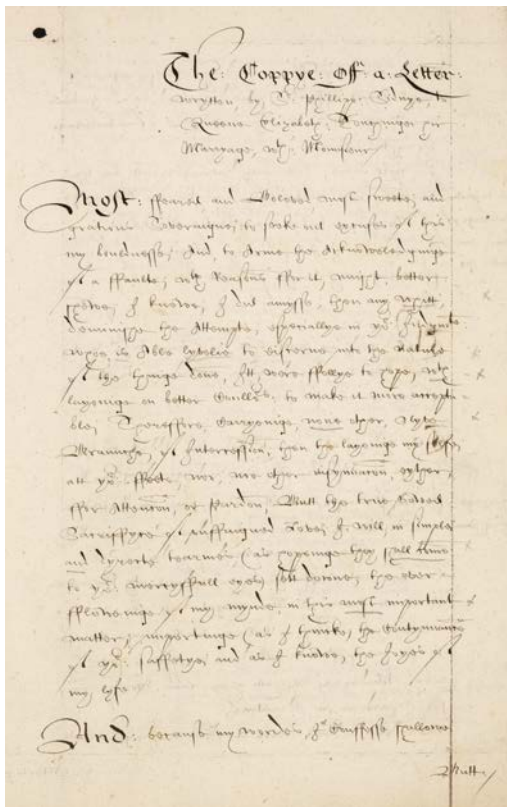 The: Coppye: Off: a: Letter:
wrytten, by, Sr. Phillippe: Sidnye, to
Queene Elizabeth, Touchinge: hir
Marryage, wth: Monnsieur
Most: ffeared and Beloved, most sweete, and
gratious Soveraigne; to seeke out excuses of this
my bouldnesse, And, to Arme the Acknowledginge
of a ffaulte, wth Reasons ffor it, might, better
shewe, I knewe, I did amysse, then any
demynishe the Attempte, especiallye in yor: Judgmte:
whoe, is Able lyvelie to discerne into the Nature
of the thinge done, Itt were ffollye to hope, wth
layeinge on better Cullers, to make it more accepta
ble, Therefore, Carryeinge, none other, Olyve
Braunche, of Intercession, then the layeinge my selfe,
att yor ffeete, nor, noe other insynuacion, eyther,
ffor Attencion, or Pardon, Butt the true vowed
Sacriffyce of unffaigned Love; I: will, in simple
and dyrecte tearmes, (as hopeinge they shall
to yor mercyffull eyes) sett downe, the over =
fflowinge of my mynde in this most important
matter, importinge (as I thincke, the Contynuance
of yor: saffetye, and as I knowe, the Joyes of
my lyfe
And: because my wordes, I: Confesse shallowe